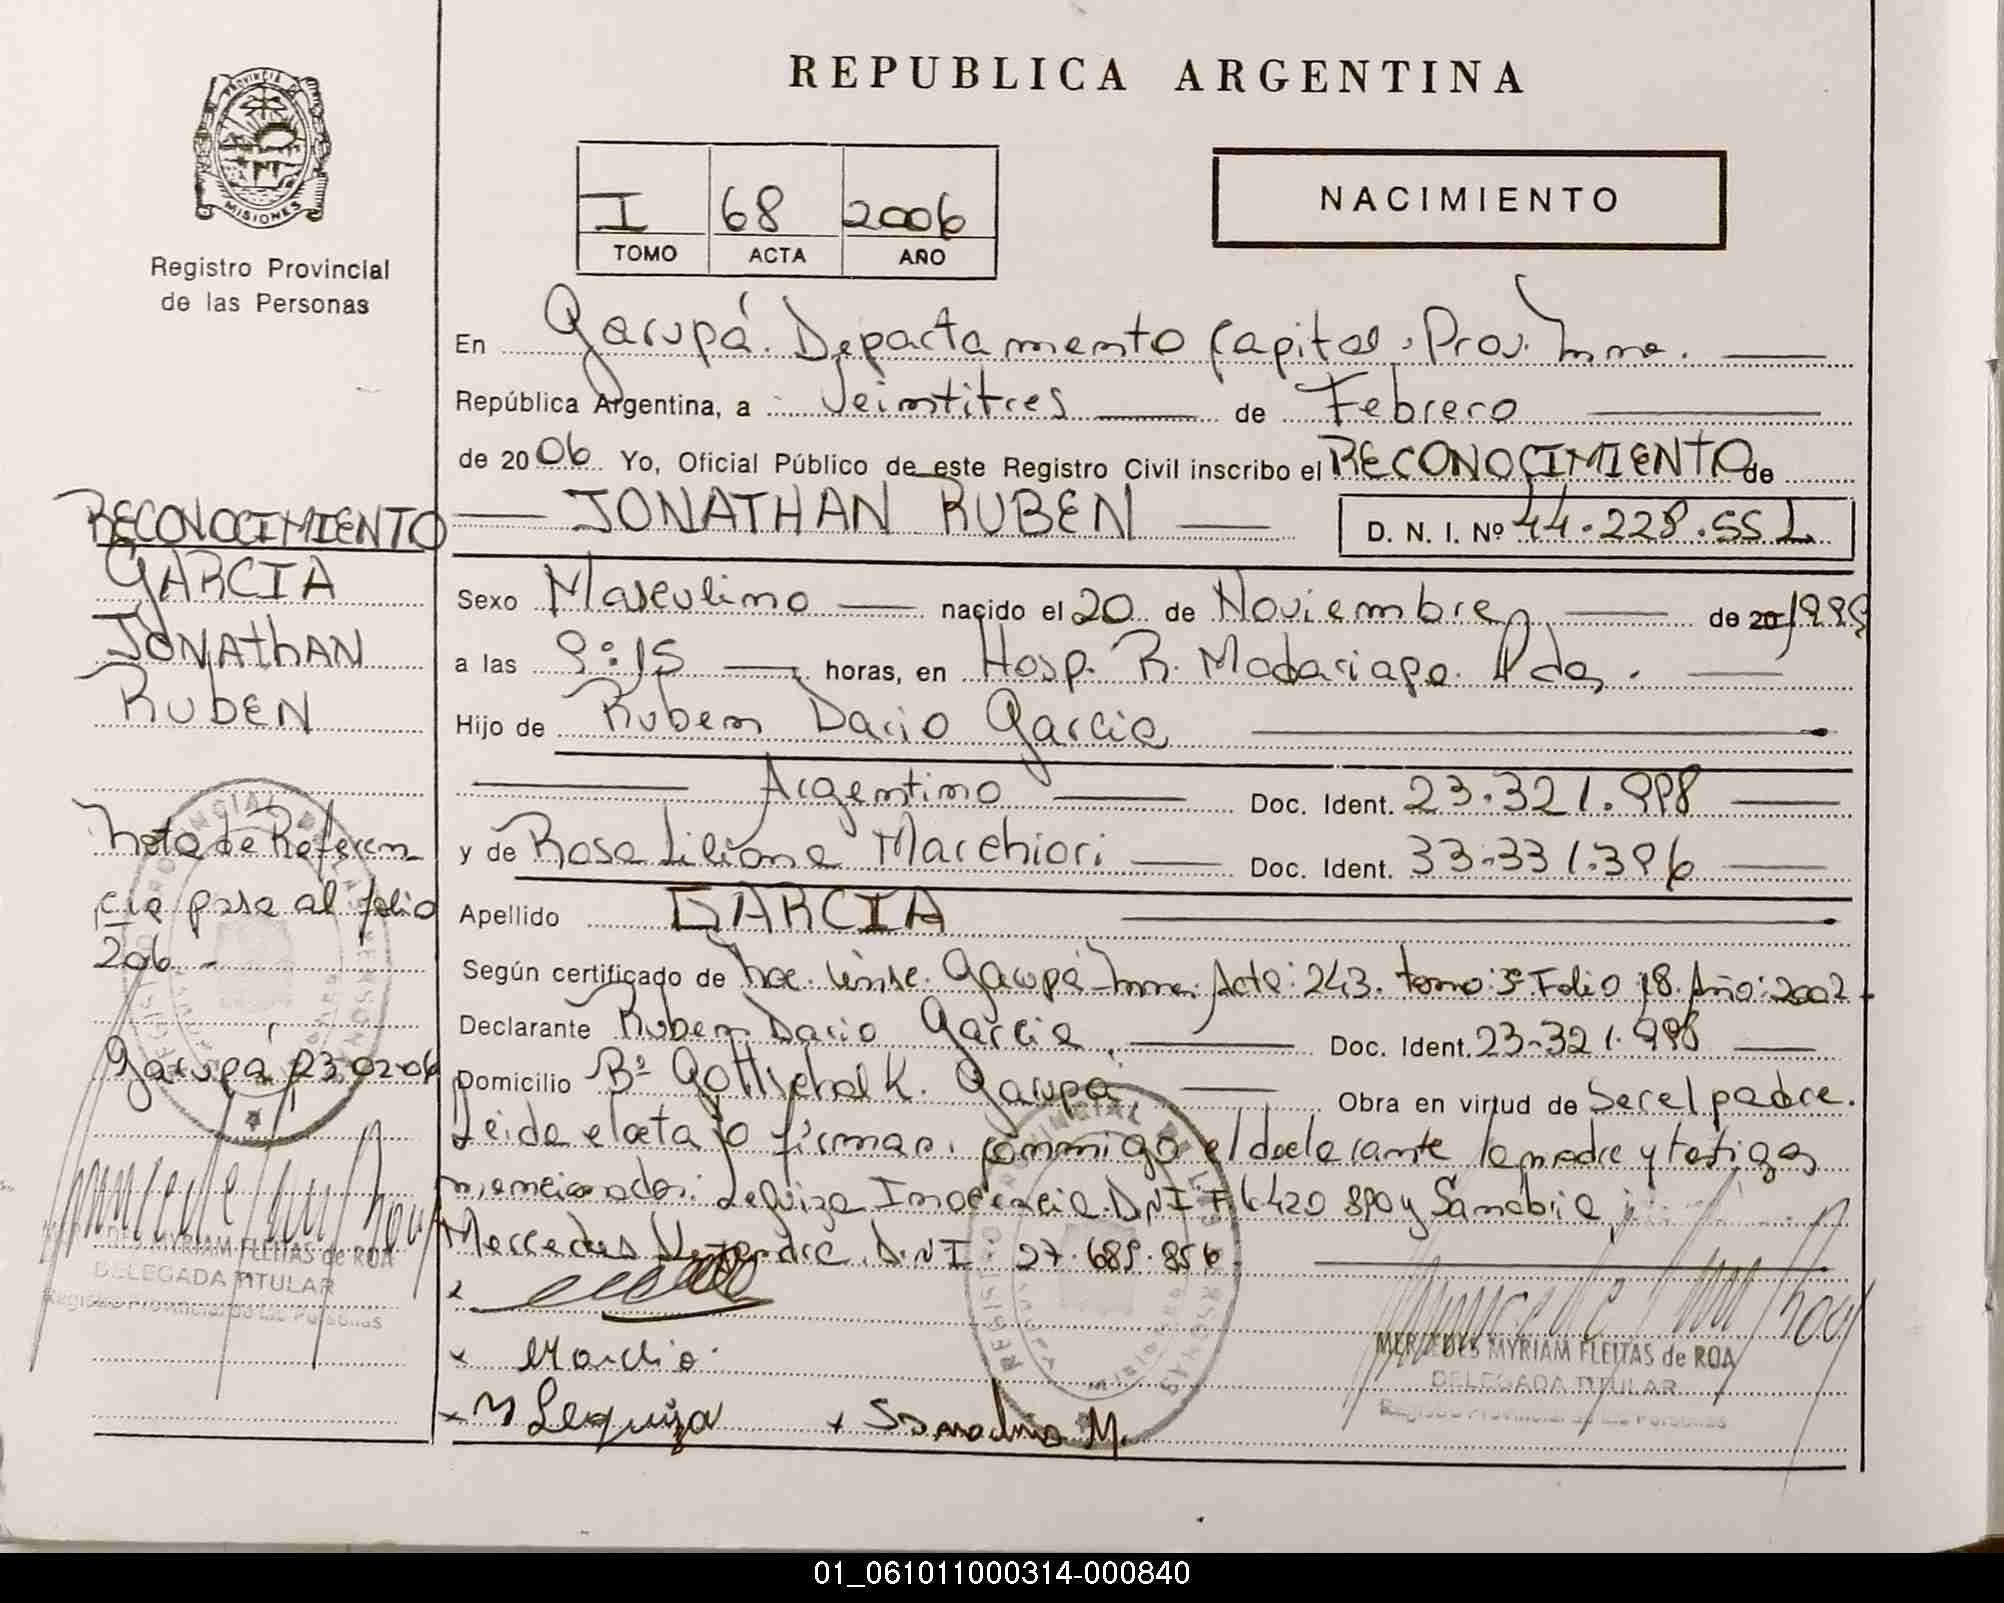 REPUBLICA ARGENTINA
PROVINCIA DE
MISIONES
Registro Provincial
de las Personas
I 68 2006
TOMO ACTA AÑO
NACIMIENTO
En Garupá. Departamento Capital, Prov. Mnes.
República Argentina, a Veintitres de Febrero
de 2006 Yo, Oficial Público de este Registro Civil inscribo el RECONOCIMIENTO de
JONATHAN RUBEN D. N. I. Nº 44.228.551
Sexo Masculino nacido el 20 de Noviembre de 20 1999
a las 9:15 horas, en Hosp. R. Madariaga. Pdas.
Hijo de Ruben Dario Garcia
Argentino Doc. Ident. 23.321.998
y de Rosa Liliana Marchiori Doc. Ident. 33.331.396
Apellido GARCIA
Según certificado de Nac. Garupá Mnes. Acta: 243. tomo: 3º Folio 18. Año: 2002
Declarante Ruben Dario Garcia Doc. Ident. 23.321.998
Domicilio Bº Gottschalk. Garupá Obra en virtud de Ser el padre.
Leida el acta lo firman conmigo el declarante la madre y testigos
mencionados: Lequiza Inocencia D.N.I. F 6420 890 y Sanabria
Mercedes D.N.I 27.689.856
x
x
x Lequiza x Sanabria M.
MERCEDES MYRIAM FLEITAS de ROA
DELEGADA TITULAR
Registro Provincial de las Personas
RECONOCIMIENTO
GARCIA
JONAthAN
RubEN
Nota de Referen
cia pasa al folio
206.-
Garupá 23.02.06
MYRIAM FLEITAS de ROA
DELEGADA TITULAR
Registro Provincial de las Personas
01_061011000314-000840